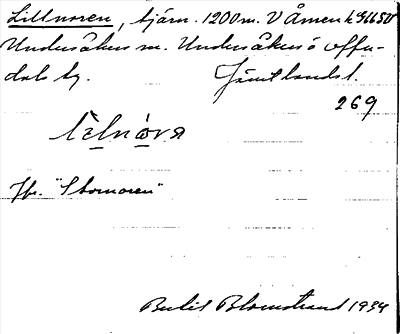 Lillnoren, tjärn. 1200 m. V Åmen k 366 SV
Undersåkers sn. Undersåkers o. Offer-
dals tg. Jämtlands l.
269
lèlnó̱ra
Jfr. "Stornoren"
Bertil Blomstrand 1934